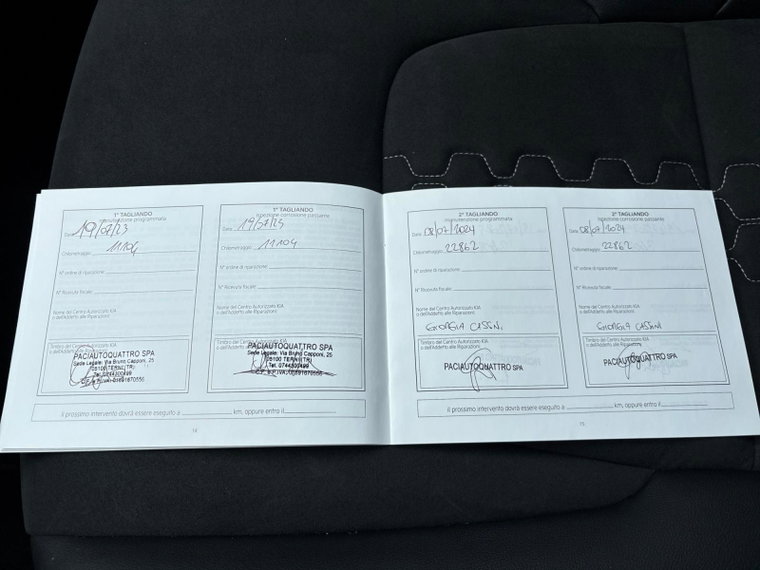 1° TAGLIANDO
manutenzione programmata
Data 19/07/23
Chilometraggio 11104
N° ordine di riparazione:
N° Ricevuta fiscale:
Nome del Centro Autorizzato KIA
o dell'Addetto alle Riparazioni:
Timbro del Centro Autorizzato KIA
o dell'Addetto alle Riparazioni:
PACIAUTOQUATTRO SPA
Sede Legale: Via Bruno Capponi, 25
05100 TERNI (TR)
Tel.
1° TAGLIANDO
ispezione corrosione passante
Data 19/07/23
Chilometraggio 11104
N° ordine di riparazione:
N° Ricevuta fiscale:
Nome del Centro Autorizzato KIA
o dell'Addetto alle Riparazioni:
Timbro del Centro Autorizzato KIA
o dell'Addetto alle Riparazioni:
PACIAUTOQUATTRO SPA
Sede Legale: Via Bruno Capponi, 25
05100 TERNI (TR)
Tel.
Il prossimo intervento dovrà essere eseguito a km, oppure entro il
14
2° TAGLIANDO
manutenzione programmata
Data 08/07/2024
Chilometraggio 22862
N° ordine di riparazione:
N° Ricevuta fiscale:
Nome del Centro Autorizzato KIA
o dell'Addetto alle Riparazioni:
GIORGIA
Timbro del Centro Autorizzato KIA
o dell'Addetto alle Riparazioni:
PACIAUTOQUATTRO SPA
2° TAGLIANDO
ispezione corrosione passante
Data 08/07/2024
Chilometraggio 22862
N° ordine di riparazione:
N° Ricevuta fiscale:
Nome del Centro Autorizzato KIA
o dell'Addetto alle Riparazioni:
GIORGIA
Timbro del Centro Autorizzato KIA
o dell'Addetto alle Riparazioni:
PACIAUTOQUATTRO SPA
Il prossimo intervento dovrà essere eseguito a km, oppure entro il
15